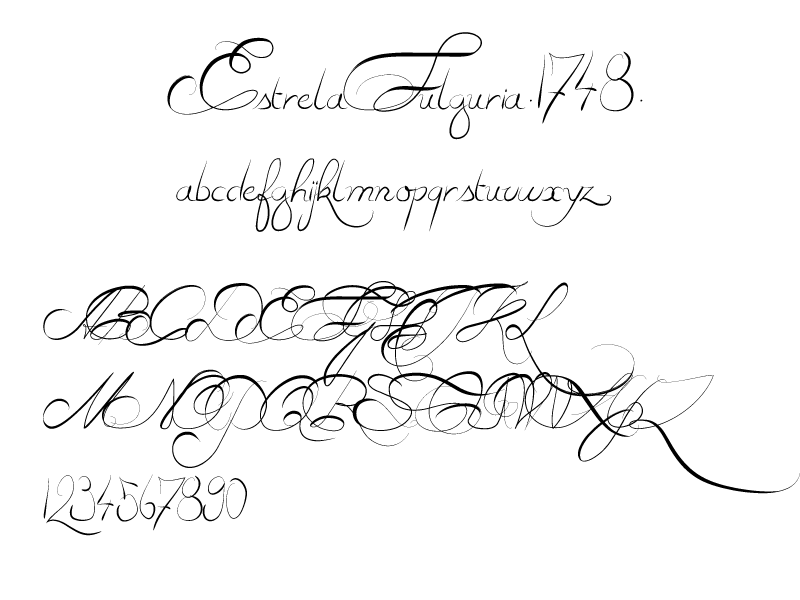 Estrela Fulguria .1748.
abcdefghijklmnopqrstuvwxyz
ABCDEFGHIJKL
MNOPQRSTUVWXYZ
1234567890